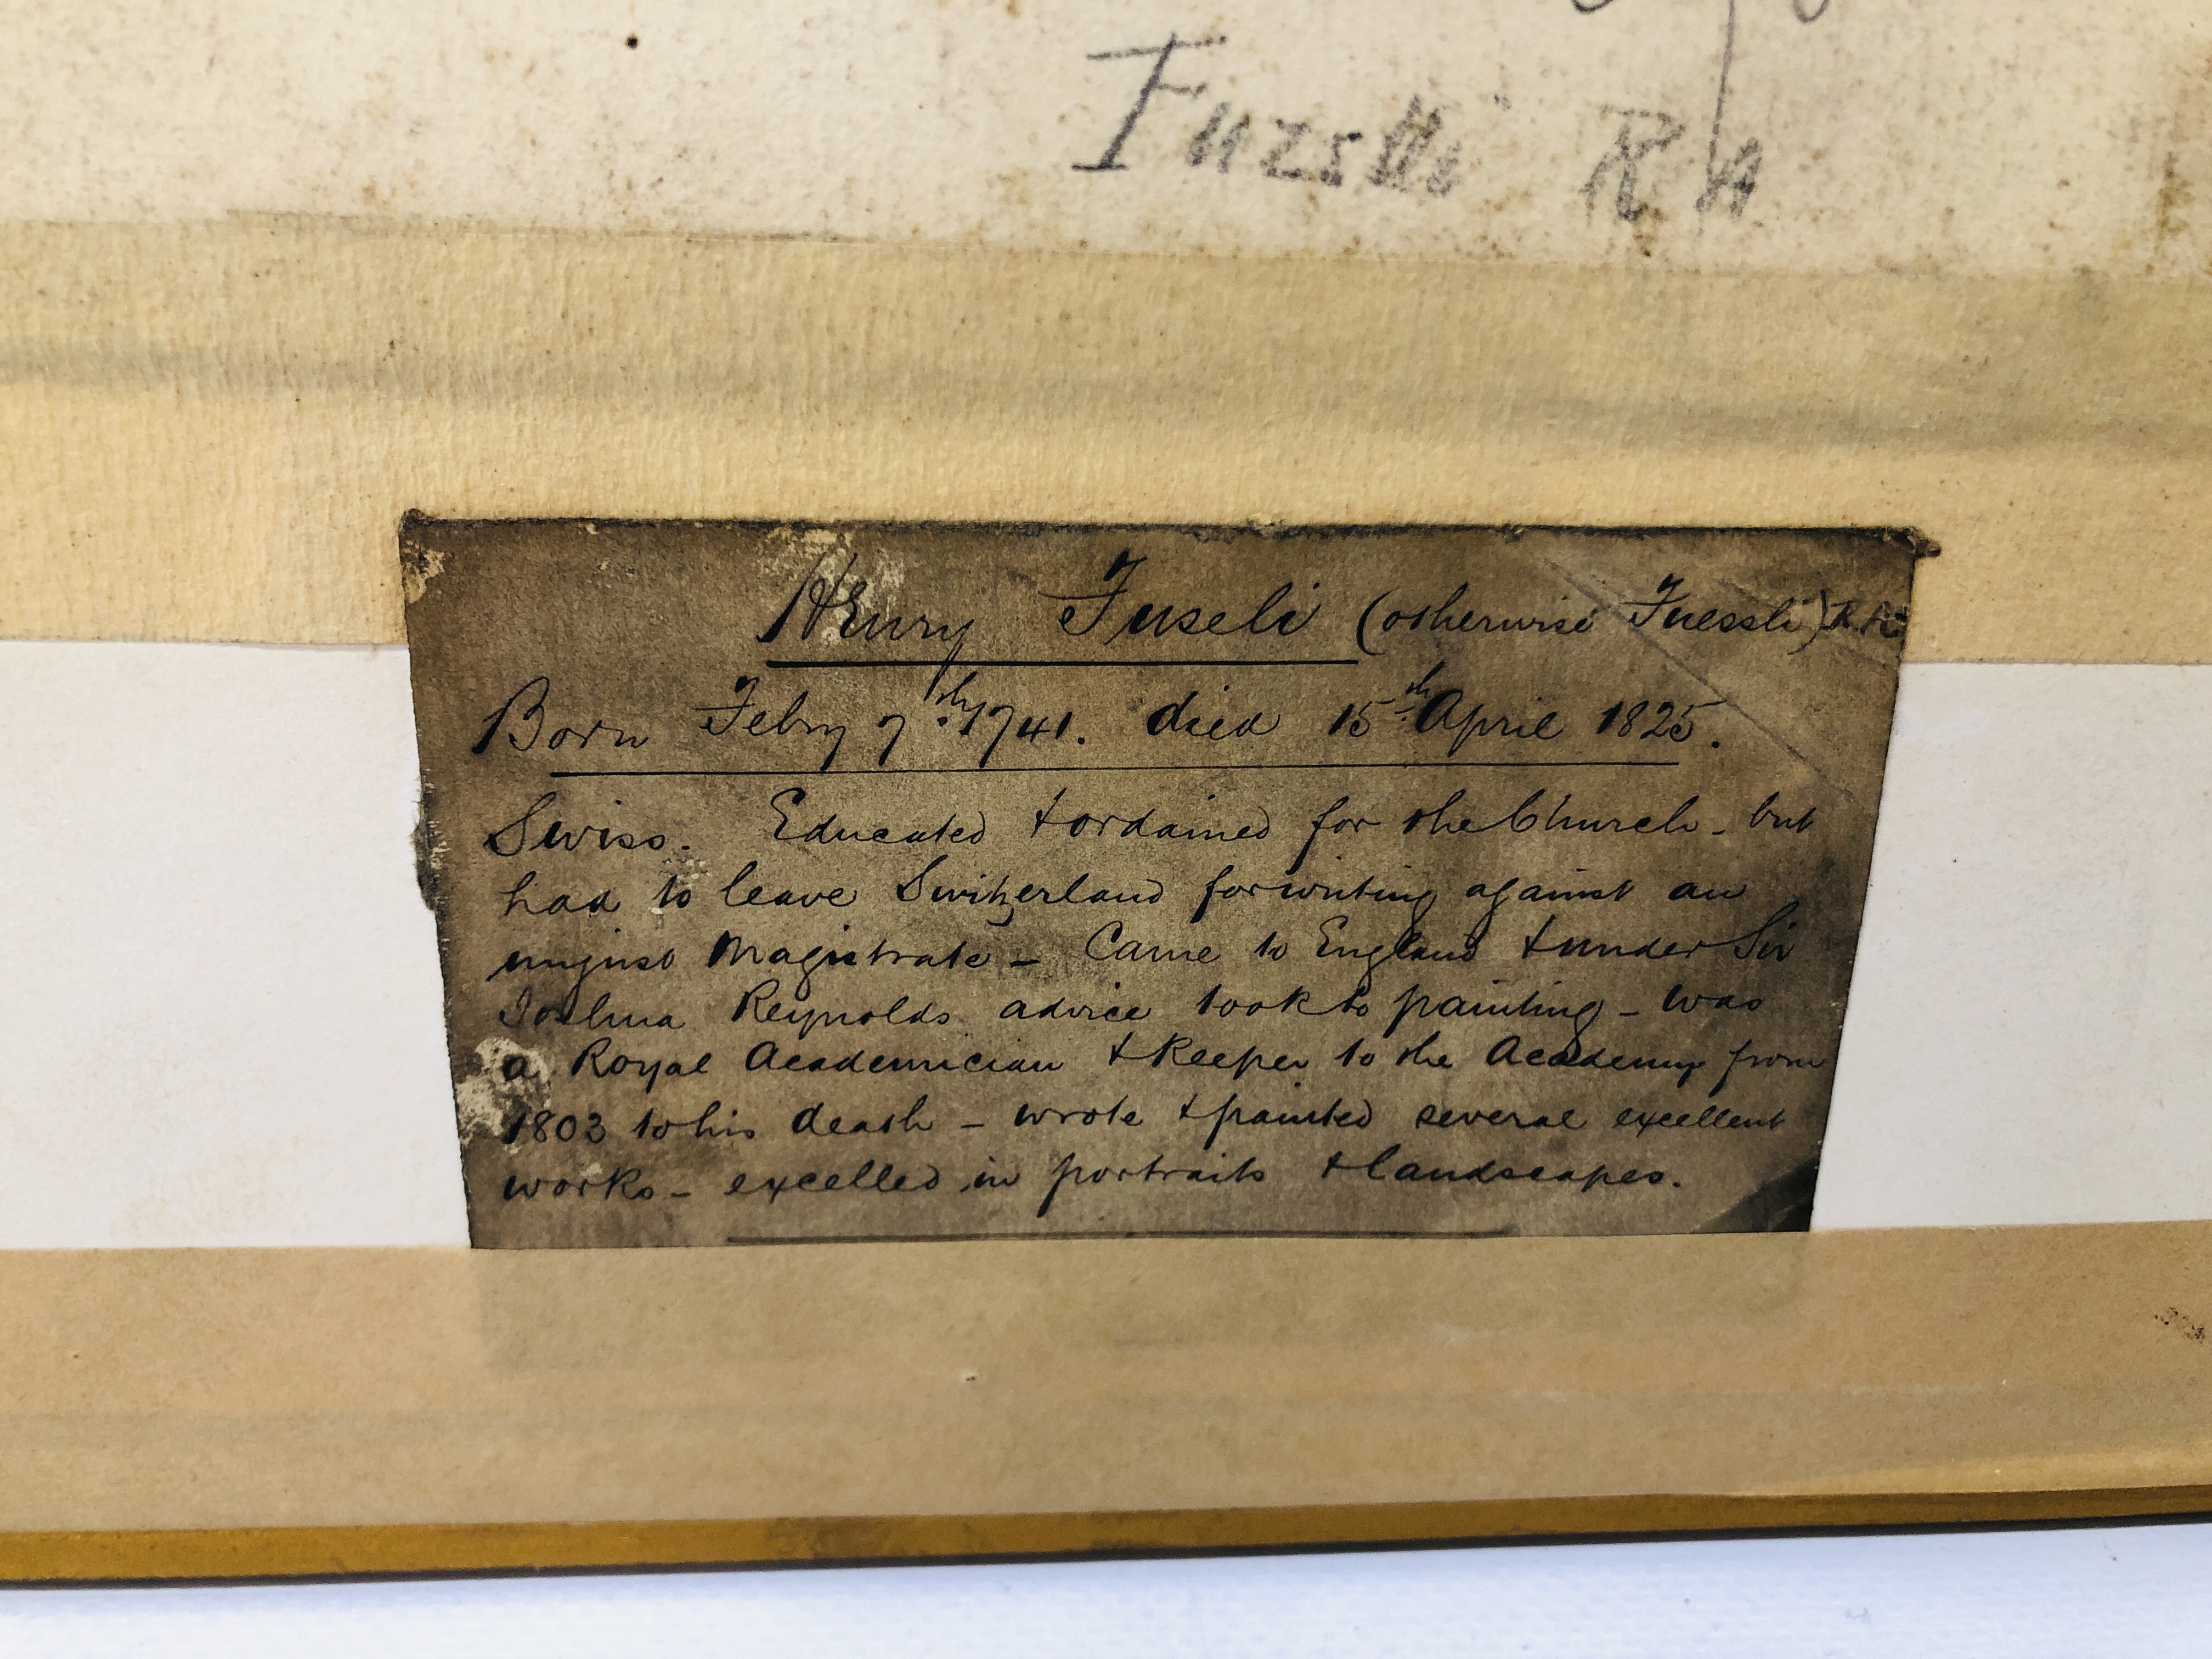 Fuzelli RA
Henry Fuseli (otherwise Fuessli) R.A.
Born Febry 7th. 1741. died 15th. April 1825.
Swiss. Educated & ordained for the Church - but
had to leave Switzerland for writing against an
unjust Magistrate - Came to England & under Sir
Joshua Reynolds advice took to painting - was
a Royal Academician & Keeper to the Academy from
1803 to his death - wrote & painted several excellent
works - excelled in portraits & landscapes.